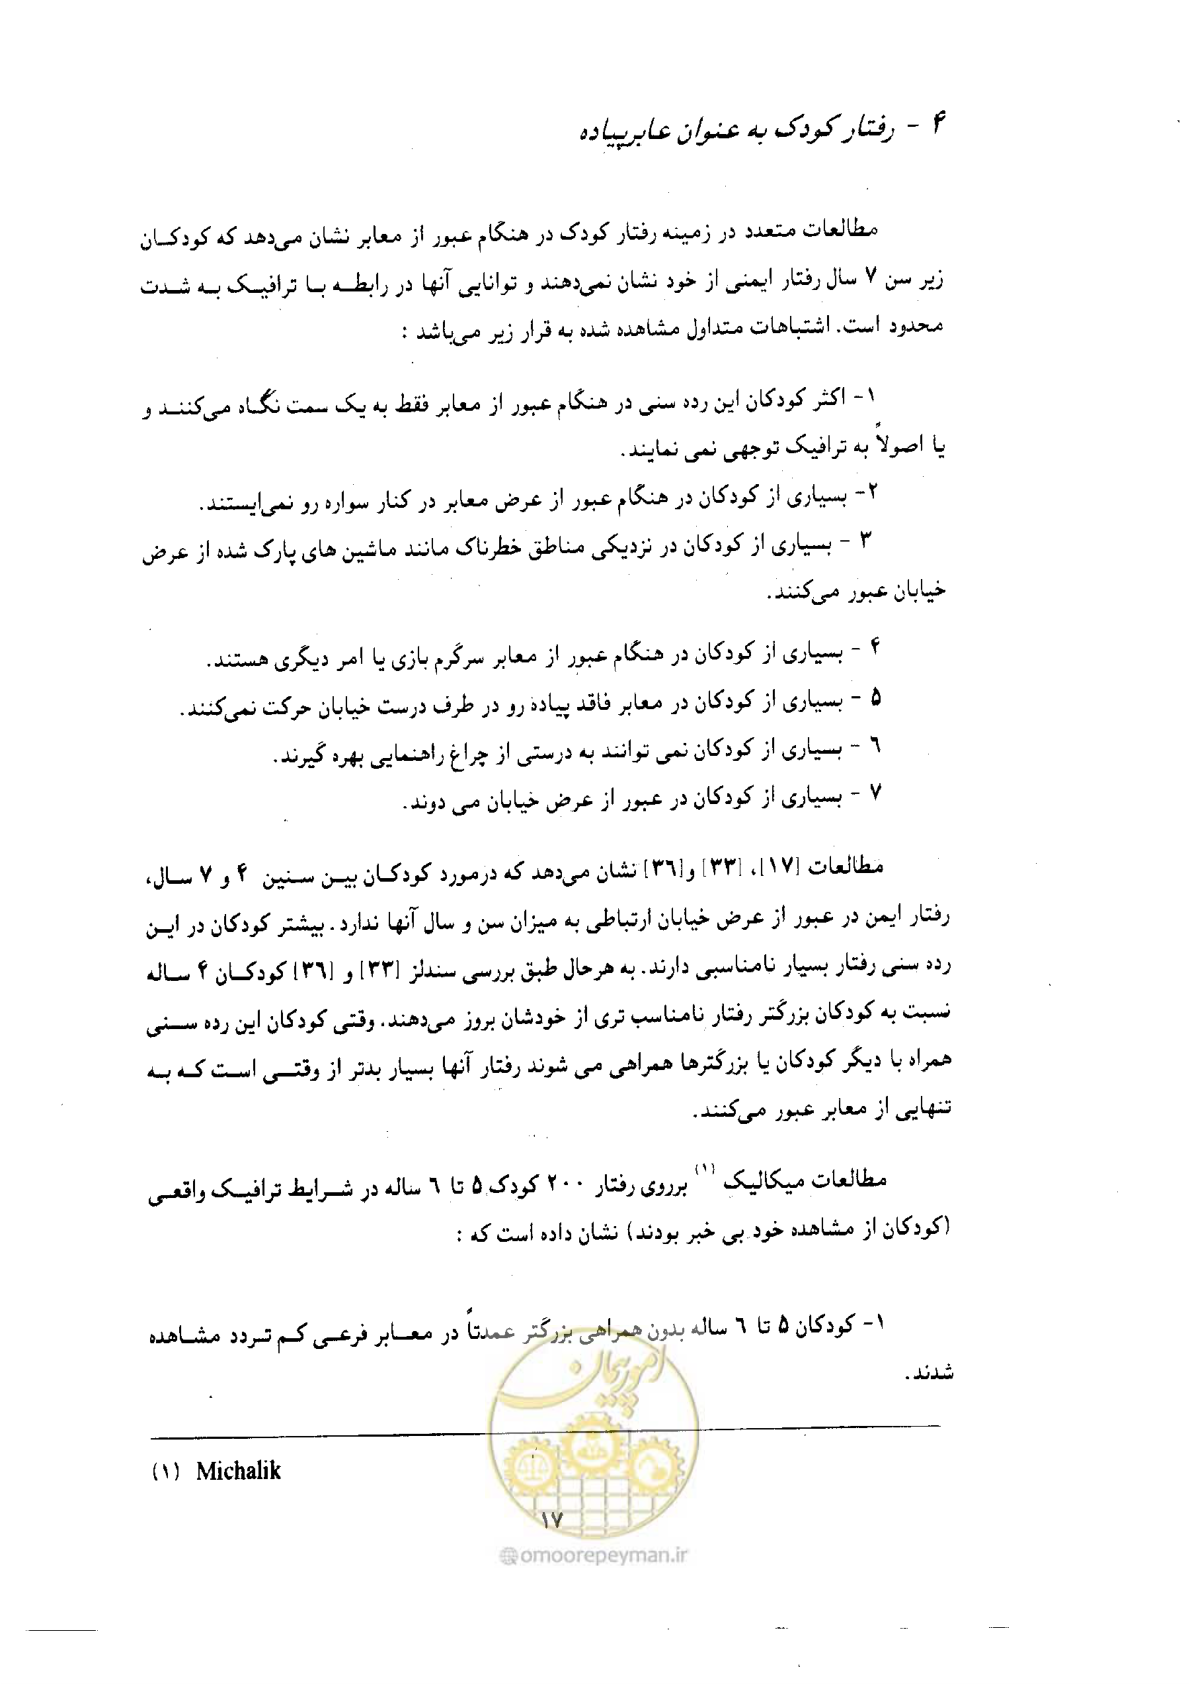 ۴ - رفتار کودک به عنوان عابرپیاده
مطالعات متعدد در زمینه رفتار کودک در هنگام عبور از معابر نشان می‌دهد که کودکان
زیر سن ۷ سال رفتار ایمنی از خود نشان نمی‌دهند و توانایی آنها در رابطه با ترافیک به شدت
محدود است. اشتباهات متداول مشاهده شده به قرار زیر می‌باشد :
۱- اکثر کودکان این رده سنی در هنگام عبور از معابر فقط به یک سمت نگاه می‌کنند و
یا اصولاً به ترافیک توجهی نمی نمایند.
۲- بسیاری از کودکان در هنگام عبور از عرض معابر در کنار سواره رو نمی‌ایستند.
۳ - بسیاری از کودکان در نزدیکی مناطق خطرناک مانند ماشین های پارک شده از عرض
خیابان عبور می‌کنند.
۴ - بسیاری از کودکان در هنگام عبور از معابر سرگرم بازی یا امر دیگری هستند.
۵ - بسیاری از کودکان در معابر فاقد پیاده رو در طرف درست خیابان حرکت نمی‌کنند.
۶ - بسیاری از کودکان نمی توانند به درستی از چراغ راهنمایی بهره گیرند.
۷ - بسیاری از کودکان در عبور از عرض خیابان می دوند.
مطالعات [۱۷]، [۳۳] و[۳۶] نشان می‌دهد که درمورد کودکان بین سنین ۴ و ۷ سال،
رفتار ایمن در عبور از عرض خیابان ارتباطی به میزان سن و سال آنها ندارد. بیشتر کودکان در این
رده سنی رفتار بسیار نامناسبی دارند. به هرحال طبق بررسی سندلز [۳۳] و [۳۶] کودکان ۴ ساله
نسبت به کودکان بزرگتر رفتار نامناسب تری از خودشان بروز می‌دهند. وقتی کودکان این رده سنی
همراه با دیگر کودکان یا بزرگترها همراهی می شوند رفتار آنها بسیار بدتر از وقتی است که به
تنهایی از معابر عبور می‌کنند.
مطالعات میکالیک (۱) برروی رفتار ۲۰۰ کودک ۵ تا ۶ ساله در شرایط ترافیک واقعی
(کودکان از مشاهده خود بی خبر بودند) نشان داده است که :
۱- کودکان ۵ تا ۶ ساله بدون همراهی بزرگتر عمدتاً در معابر فرعی کم تردد مشاهده
شدند.
امور پیمان
(۱) Michalik
۱۷
@omoorepeyman.ir